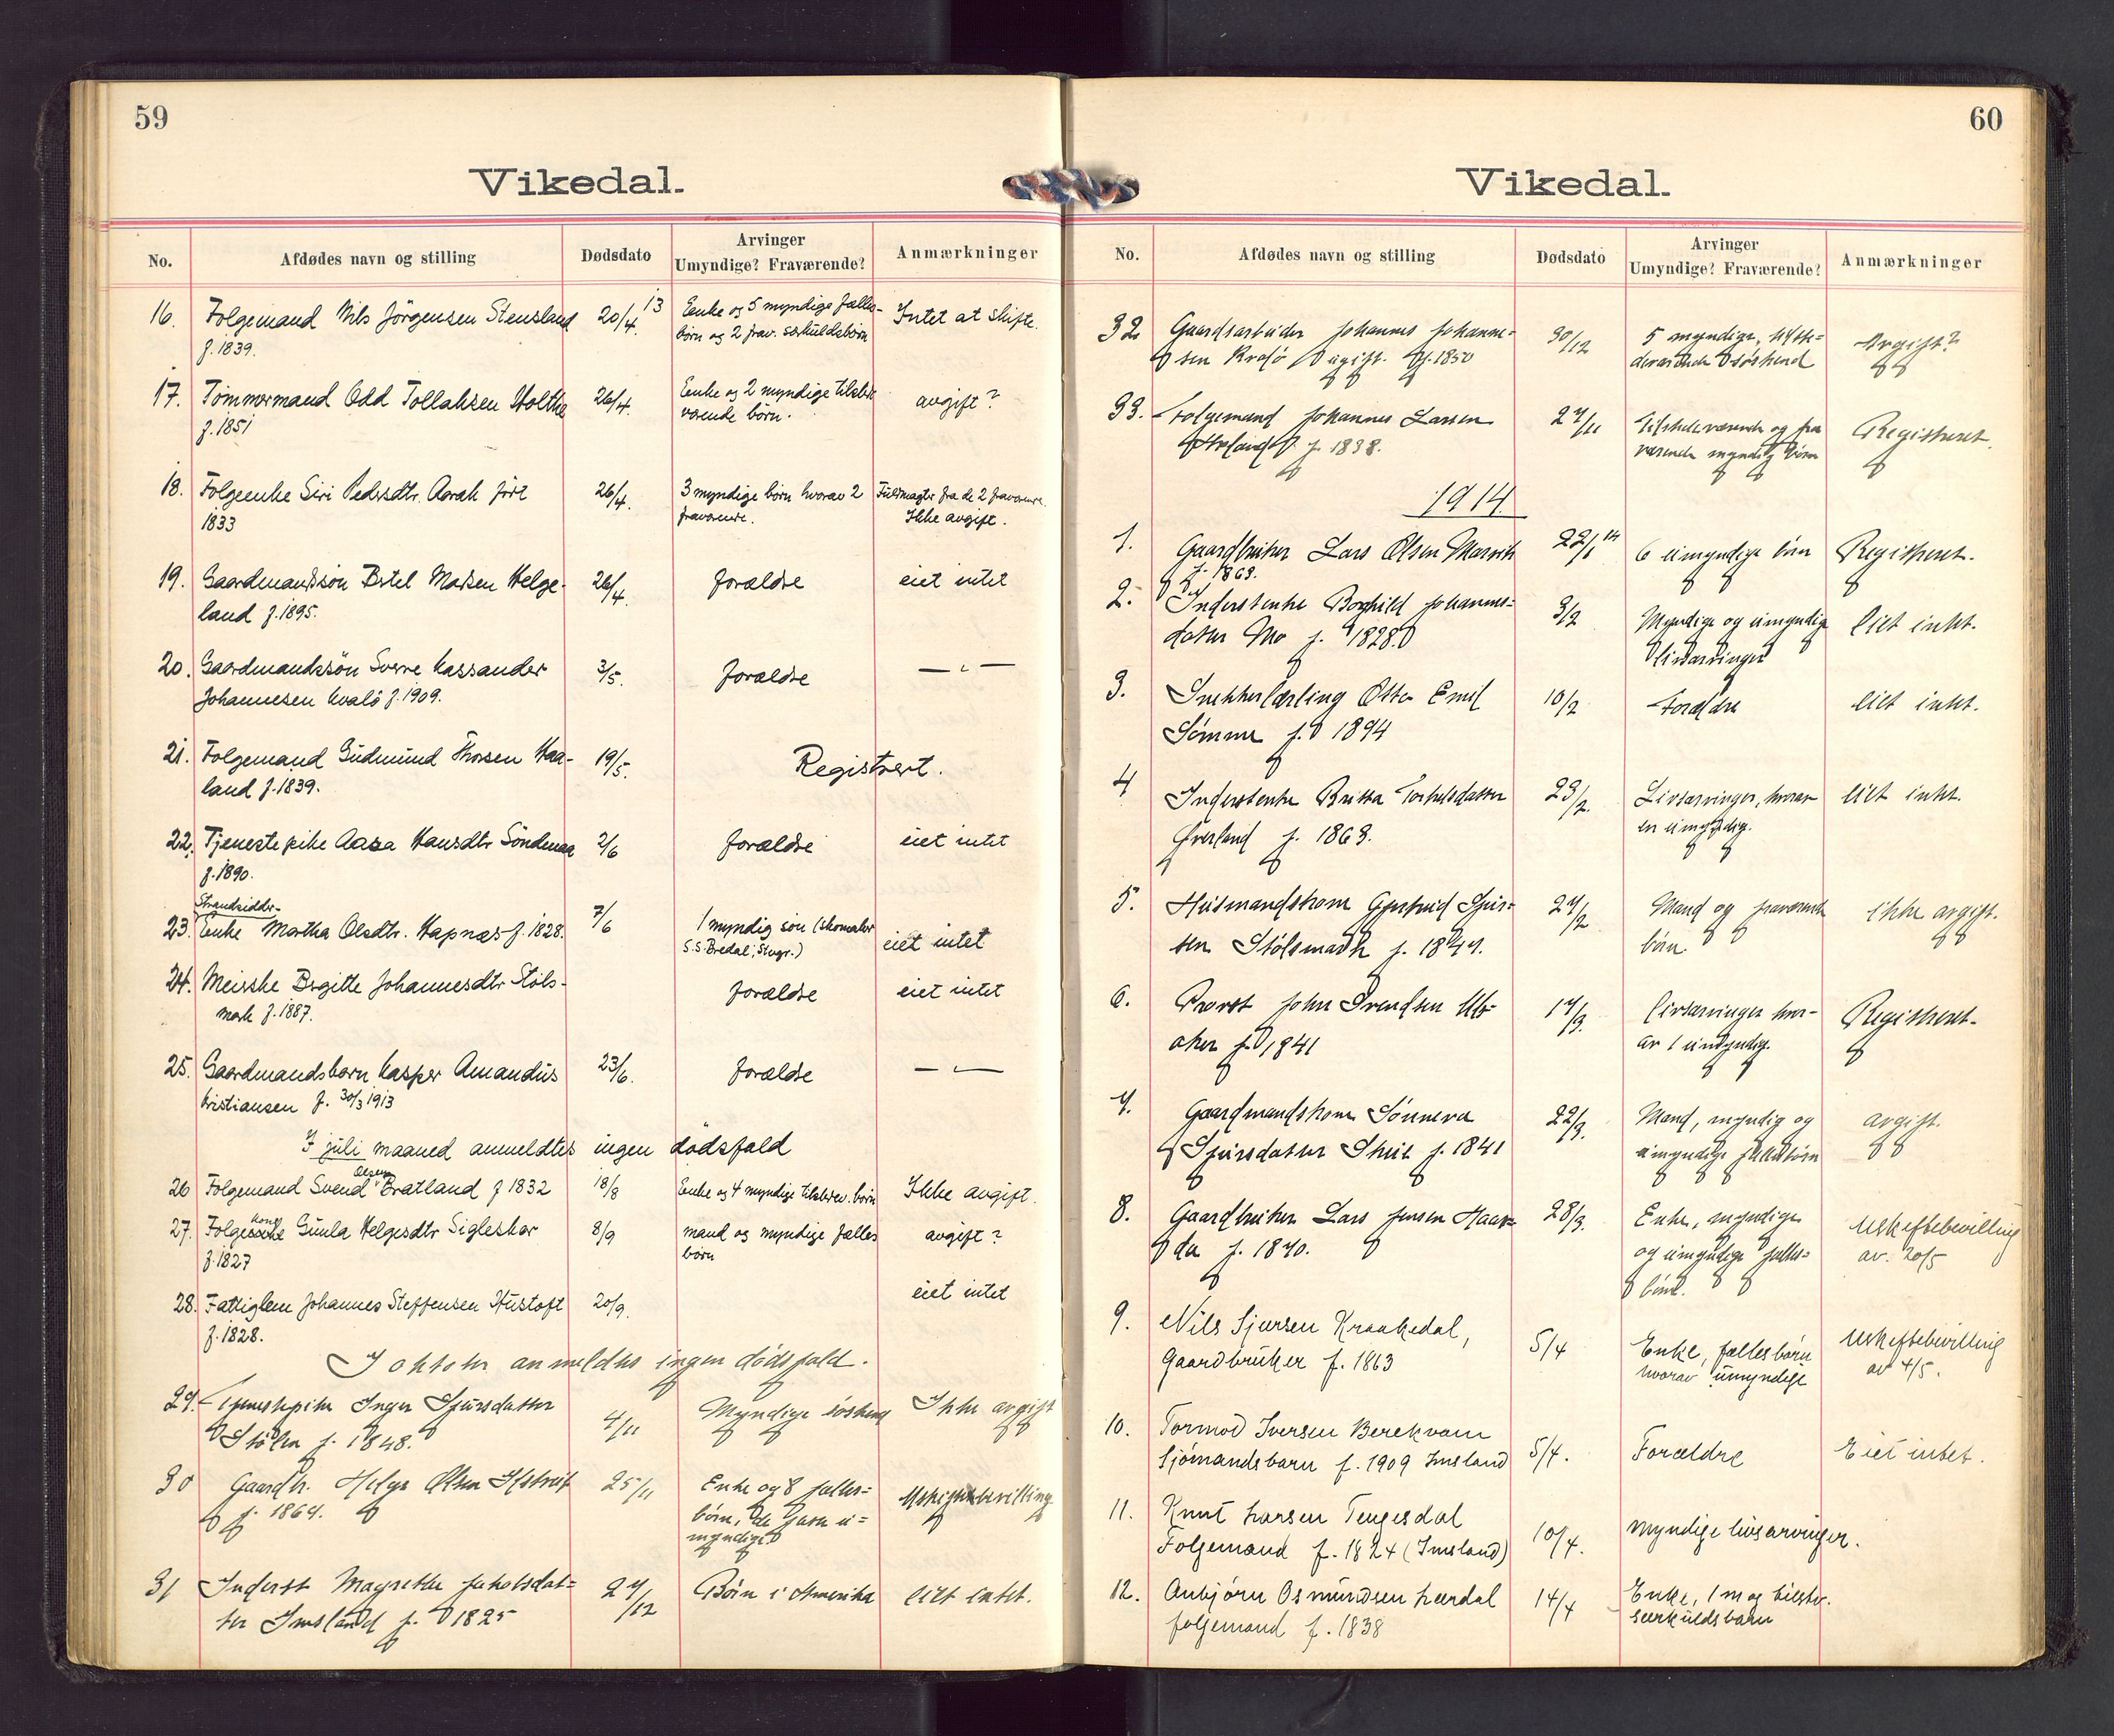 59
Vikedal.
No. Afdødes navn og stilling Dødsdato Arvinger Umyndige? Fraværende? Anmærkninger
16. Folgemand Nils Jörgensen Stensland 20/4 13 Enke og 5 myndige fælles- Intet at skifte.
f. 1839. börn og 2 frav. særkuldsbörn
17. Tömmermand Odd Tollaksen Holthe 26/4. Enke og 2 myndige tilstede avgift?
f. 1851 værende börn.
18. Folgeenke Siri Pedersdtr. Aarak föit 26/4. 3 myndige börn hvorav 2 Fuldmagter fra de 2 fraværende.
1833 fraværende. Ikke avgift.
19. Gaardmandssön Bertel Madsen Helge- 26/4. forældre eiet intet
land f. 1895.
20. Gaardmandssön Sverre Kassander 3/5. forældre — " —
Johannesen Kvalö f. 1909.
21. Folgemand Gudmund Thorsen Haa- 19/5. Registrert.
land f. 1839.
22. Tjenestepike Aasa Hansdtr Söndenaa 2/6 forældre eiet intet
f. 1890.
Strandsidder-
23. Enke Martha Olsdtr. Hapnæs f. 1828. 7/6 1 myndig sön (skomaker eiet intet
S. S. Bredal, Stvgr.)
24. Meierske Bergitte Johannesdtr Stöls- forældre eiet intet
mark f. 1887.
25. Gaardmandsbarn Kasper Amandus 23/6. forældre — " —
Kristiansen f. 30/3 1913
I juli maaned anmeldtes ingen dödsfald
Olsen
26 Folgemand Svend Bratland f 1832 18/8 Enke og 4 myndige tilstedev. börn Ikke avgift.
kone
27. Folgeenke Gunla Helgesdtr Sigleskar 8/9 mand og myndige fælles avgift?
f. 1827 börn
28. Fattiglem Johannes Steffensen Hustoft 20/9. eiet intet
f. 1828.
I oktober anmeldtes ingen dødsfald.
29. Tjenestepike Inger Sjursdatter 4/11 Myndige søskend Ikke avgift
Stølen f. 1848.
30 Gaardb. Helge Olsen 25/11 Enke og 8 fælles= Uskiftebevilling
f. 1864. børn, de u=
myndige
31 Inderst Magrethe Jakobsdat= 27/12 Børn i Amerika eiet intet.
ter Imsland f. 1825
60
Vikedal.
No. Afdødes navn og stilling Dødsdato Arvinger Umyndige? Fraværende? Anmærkninger
32 Gaardsarbeider Johannes Johanne= 30/12 5 myndige, Avgift?
sen Kvalø ugift. f. 1850 søskend
33. Folgemand Johannes Larsen 27/11 Tilstedeværende og fra Registreret.
f. 1838. værende myndig børn
1914
1. Gaardbruker Lars Olsen Marvik 22/1 14 6 umyndige børn Registreret.
f. 1863.
2. Inderstenke Borghild Johannes= 3/2 Myndige og umyndige Eiet intet.
datter Mo f. 1828. livsarvinger
3. Snekkerlærling Otto Emil 10/2 Forældre Eiet intet.
Sømme f. 1894
4 Inderstenke Britta Torkelsdatter 23/2. Livsarvinger, hvorav eiet intet.
Øverland f. 1863. en umyndig.
5. Husmandskone Gjertrud Sjur= 27/2 Mand og fraværende ikke avgift.
sen Stølsmark f. 1849. børn.
6. Provst John Svendsen Ub= 17/3. Livsarvinger hvor- Registreret.
aker f. 1841 av 1 umyndig.
7. Gaardmandskone Sønneva 22/3. Mand, myndig og avgift.
Sjursdatter f. 1841 umyndige fællesbørn
8. Gaardbruker Lars Jensen Haar= 28/3. Enke, myndige Uskiftebevilling
da f. 1870. og umyndige fælles= av 20/5
børn.
9. Nils Sjursen Kraakedal, 5/4 Enke, fællesbørn Uskiftebevilling
Gaardbruker f. 1863 hvorav umyndige av 4/5.
10. Tormod Iversen Berekvam 5/4. Forældre Eiet intet.
Sjømandsbarn f. 1909 Imsland
11. Knut Larsen Tengesdal 10/4. Myndige livsarvinger.
Folgemand f. 1824 (Imsland)
12. Anbjørn Osmundsen Lærdal 14/4 Enke, 1 m og tilstv.
folgemand f. 1838 særkuldsbarn